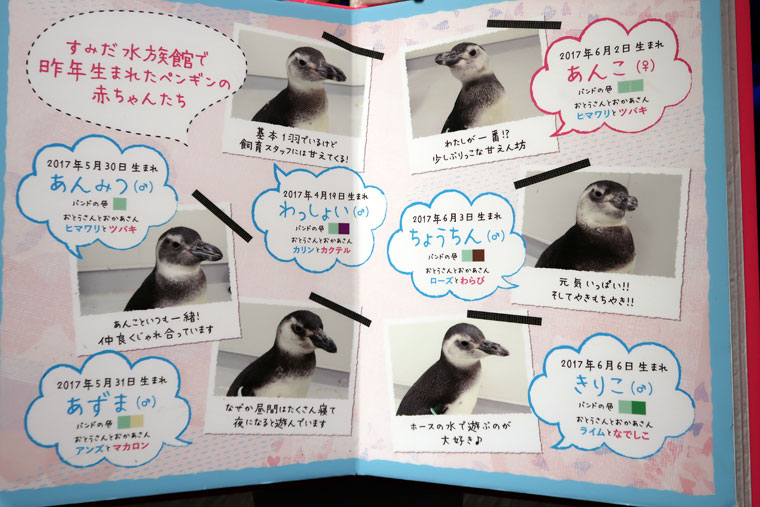 すみだ水族館で
昨年生まれたペンギンの
赤ちゃんたち
基本1羽でいるけど
飼育スタッフには甘えてくる!
2017年4月19日生まれ
わっしょい(♂)
バンドの色
おとうさんとおかあさん
カリンとカクテル
2017年5月30日生まれ
あんみつ(♂)
バンドの色
おとうさんとおかあさん
ヒマワリとツバキ
あんこといつも一緒!
仲良くじゃれ合っています
2017年5月31日生まれ
あずま(♂)
バンドの色
おとうさんとおかあさん
アンズとマカロン
なぜか昼間はたくさん寝て
夜になると遊んでいます
わたしが一番!?
少しぶりっこな甘えん坊
2017年6月2日生まれ
あんこ(♀)
バンドの色
おとうさんとおかあさん
ヒマワリとツバキ
2017年6月3日生まれ
ちょうちん(♂)
バンドの色
おとうさんとおかあさん
ローズとわらび
元気いっぱい!!
そしてやきもちやき!!
ホースの水で遊ぶのが
大好き♪
2017年6月6日生まれ
きりこ(♂)
バンドの色
おとうさんとおかあさん
ライムとなでしこ